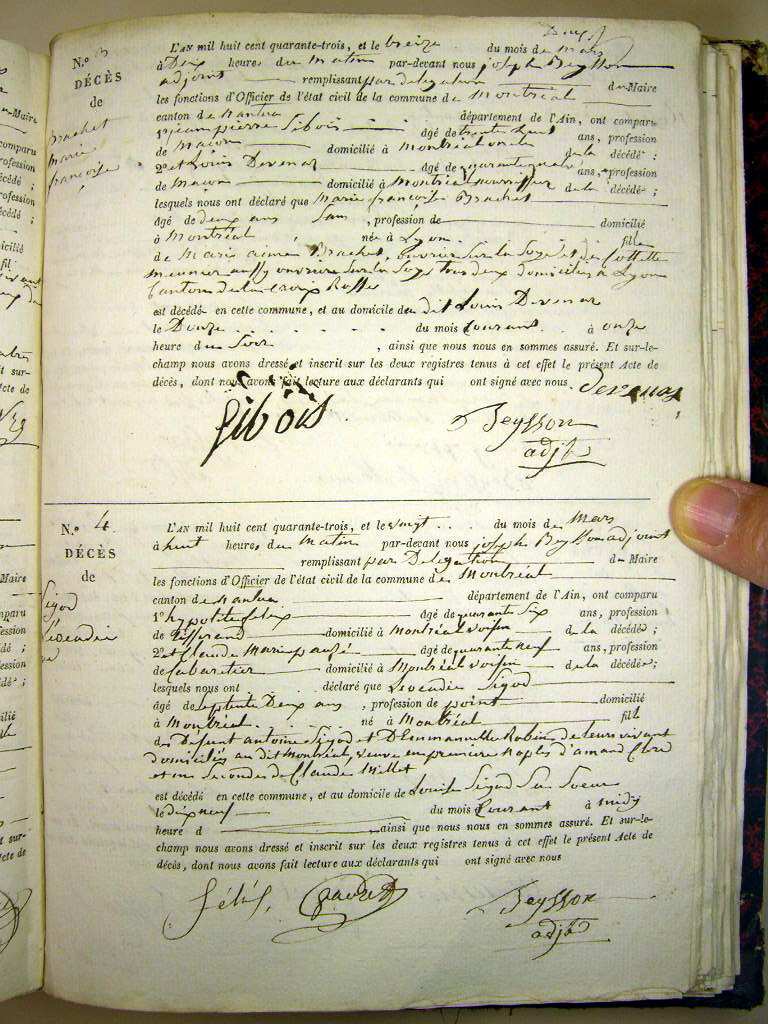 N.o 3
DÉCÈS
de
Brachet
marie
françoise
L'AN mil huit cent quarante-trois, et le treize du mois de Mars
à Deux heures du matin par-devant nous joseph Beysson
adjoint remplissant par delegation du Maire
les fonctions d'Officier de l'état civil de la commune de Montréal
canton de Nantua département de l'Ain, ont comparu
1o jean pierre Gibois âgé de trente huit ans, profession
de Maçon domicilié à Montréal oncle de la décédée;
2o et Louis Devenas âgé de quarante ans, profession
de Maçon domicilié à Montréal nourrisseur de la décédée;
lesquels nous ont déclaré que Marie françoise Brachet
âgé de deux ans Sans, profession de domicilié
à Montréal née à Lyon fille
de Marie aimée Brachet, ouvrier Sur la Soye et de Collette
meunier aussy ouvriere Sur la Soye tous deux domiciliés à Lyon
Canton de la croix Rosse
est décédé en cette commune, et au domicile du dit Louis Devenas
le Douze du mois Courant à onze
heure du Soir, ainsi que nous nous en sommes assuré. Et sur-le-
champ nous avons dressé et inscrit sur les deux registres tenus à cet effet le présent Acte de
décès, dont nous avons fait lecture aux déclarants qui ont signé avec nous. devenas
Gibois Beysson
adjt
N.o 4
DÉCÈS
de
Sigod
Léocadie
L'AN mil huit cent quarante-trois, et le vingt du mois de Mars
à huit heures du Matin par-devant nous joseph Beysson adjoint
remplissant par Delegation du Maire
les fonctions d'Officier de l'état civil de la commune de Montréal
canton de Nantua département de l'Ain, ont comparu
1o hypolite felix âgé de quarante Six ans, profession
de Tisserand domicilié à Montréal voisin de la décédée;
2o et Claude Marie âgé de quarante neuf ans, profession
de Cabaretier domicilié à Montréal voisin de la décédée;
lesquels nous ont déclaré que Léocadie Sigod
âgé de Septente Deux ans, profession de point domicilié
à Montréal né à Montréal fille
des Défunt antoine Sigod et D'Emmanuelle Robin de leurs vivant
domiciliés au dit Montréal, veuve en premiere Noples d'amand
et en Secondes de Claude Millet
est décédé en cette commune, et au domicile de Louise Sigod Sa Soeur
le dix neuf du mois Courant à midy
heure d ainsi que nous nous en sommes assuré. Et sur-le-
champ nous avons dressé et inscrit sur les deux registres tenus à cet effet le présent Acte de
décès, dont nous avons fait lecture aux déclarants qui ont signé avec nous
félix Beysson
adjt